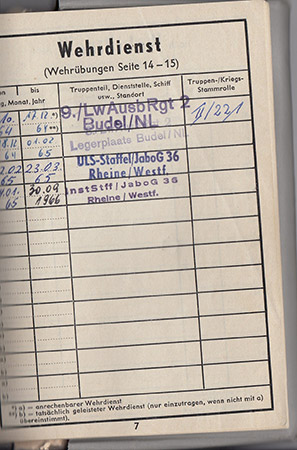 Wehrdienst
(Wehrübungen Seite 14 – 15)
on bis
Tag, Monat, Jahr
Truppenteil, Dienststelle, Schiff
usw., Standort
Truppen-/Kriegs-
Stammrolle
9./LwAusbRgt 2
Budel/NL
64 **)
II/221
01.02.
64 65
Legerplaats Budel/NL
2.02 23.03.
65 65
ULS-Staffel/JaboG 36
Rheine/Westf.
30.09
65 1966
InstStff/JaboG 36
Rheine/Westf.
*) a) = anrechenbarer Wehrdienst
**) b) = tatsächlich geleisteter Wehrdienst (nur einzutragen, wenn nicht mit a)
übereinstimmt).
7